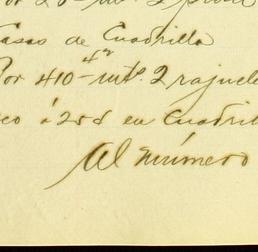 Casas de Cuadrilla
Por 410 mts. 2 rajuela
co á 258 en Cuadril
Al número